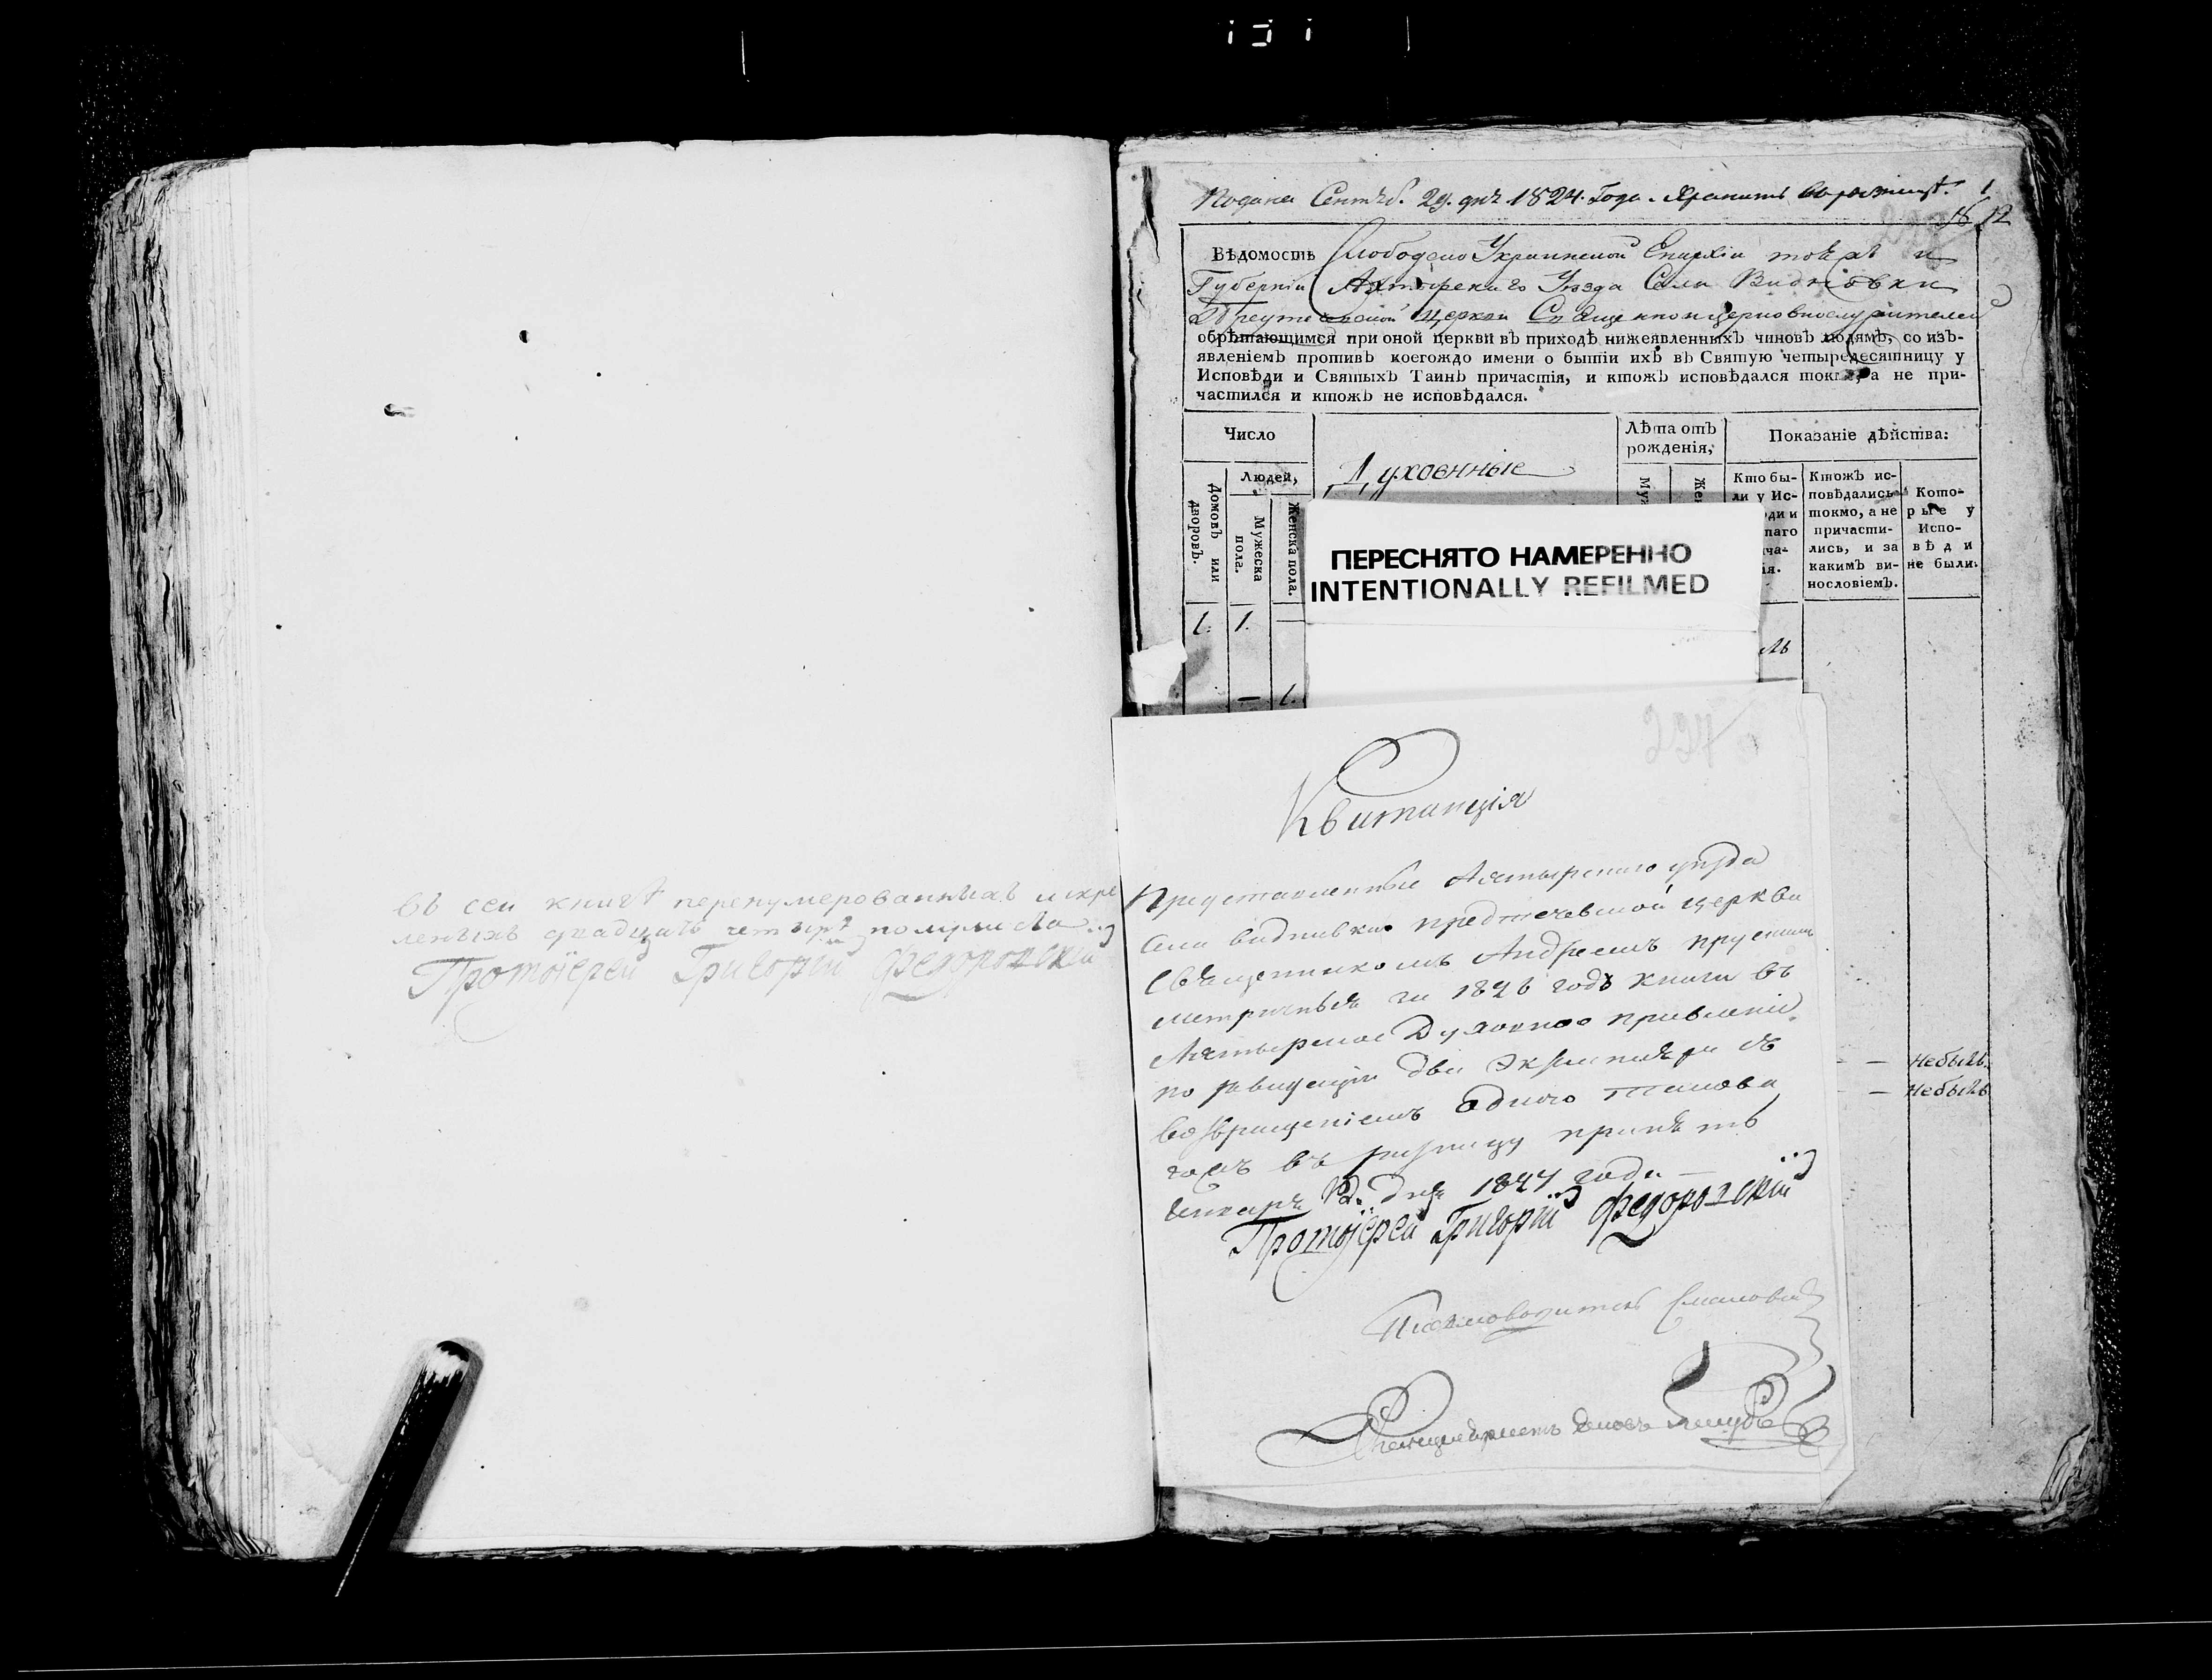 въ сеи книгѣ перенумерованныхъ и скре
пленыхъ двадцать четыре полулиста
Протоїерей Григорїй Федоровскїй
Подана Сентѣб. 29. дня 1824. Года. Хранить въ ризницѣ. 1
Вѣдомость Слободско Украинской Епархіи тоежъ и
Губерніи Ахтырскаго Уѣзда Села Видновки
Предтечевской Церкви Священно и церковнослужителей
обрѣтающимся при оной церкви въ приходѣ нижеявленныхъ чиновъ людямъ, со изъ-
явленіемъ противъ коегождо имени о бытіи ихъ въ Святую четыредесятницу у
Исповѣди и Святыхъ Таинъ причастія, и ктожъ исповѣдался токмо, а не при-
частился и ктожъ не исповѣдался.
Число
Людей,
Домовъ или дворовъ.
Мужеска пола.
Женска пола.
Духовныіе
Лѣта отъ
рожденія,
Му
Же
Показаніе дѣйства:
Кто бы-
ли у Ис-
ди и
таго
ча-
ія.
Ктожъ ис-
повѣдались
токмо, а не
причасти-
лись, и за
какимъ ви-
нословіемъ.
Кото-
рые у
Испо-
вѣди
не были.
1. 1. —
— 1.
ПЕРЕСНЯТО НАМЕРЕННО
INTENTIONALLY REFILMED
лъ
— — Небылъ.
— Небылъ
227
Квитанція
Представленные Ахтырскаго уѣзда
Села видновки предтечевской церкви
Священникомъ Андреемъ
метричныя за 1826 годъ книги въ
Ахтырское Духовное правленіе
по ревизіи два Экземпляра съ
возвращеніемъ одного
въ ризницу принятъ
Генваря дня 1827 года —
Протоїерей Григорїй Федоровскїй
Письмоводитель
Канцеляристъ